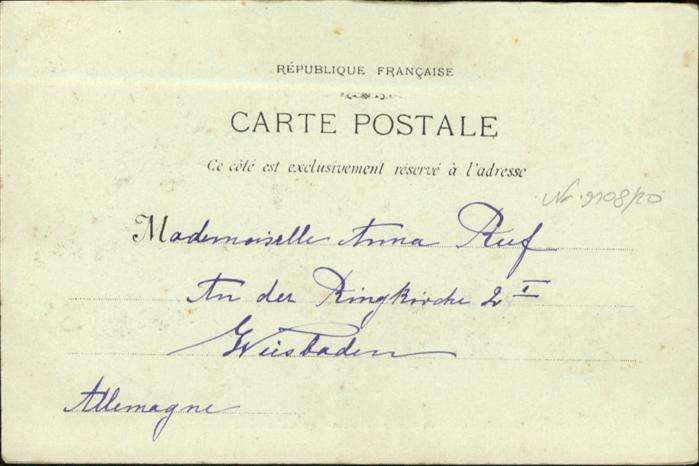 RÉPUBLIQUE FRANÇAISE
CARTE POSTALE
Ce côté est exclusivement réservé à l'adresse
Nr. 9708/20
Mademoiselle Anna Ruf
An der Ringkirche 2 I
Wiesbaden
Allemagne